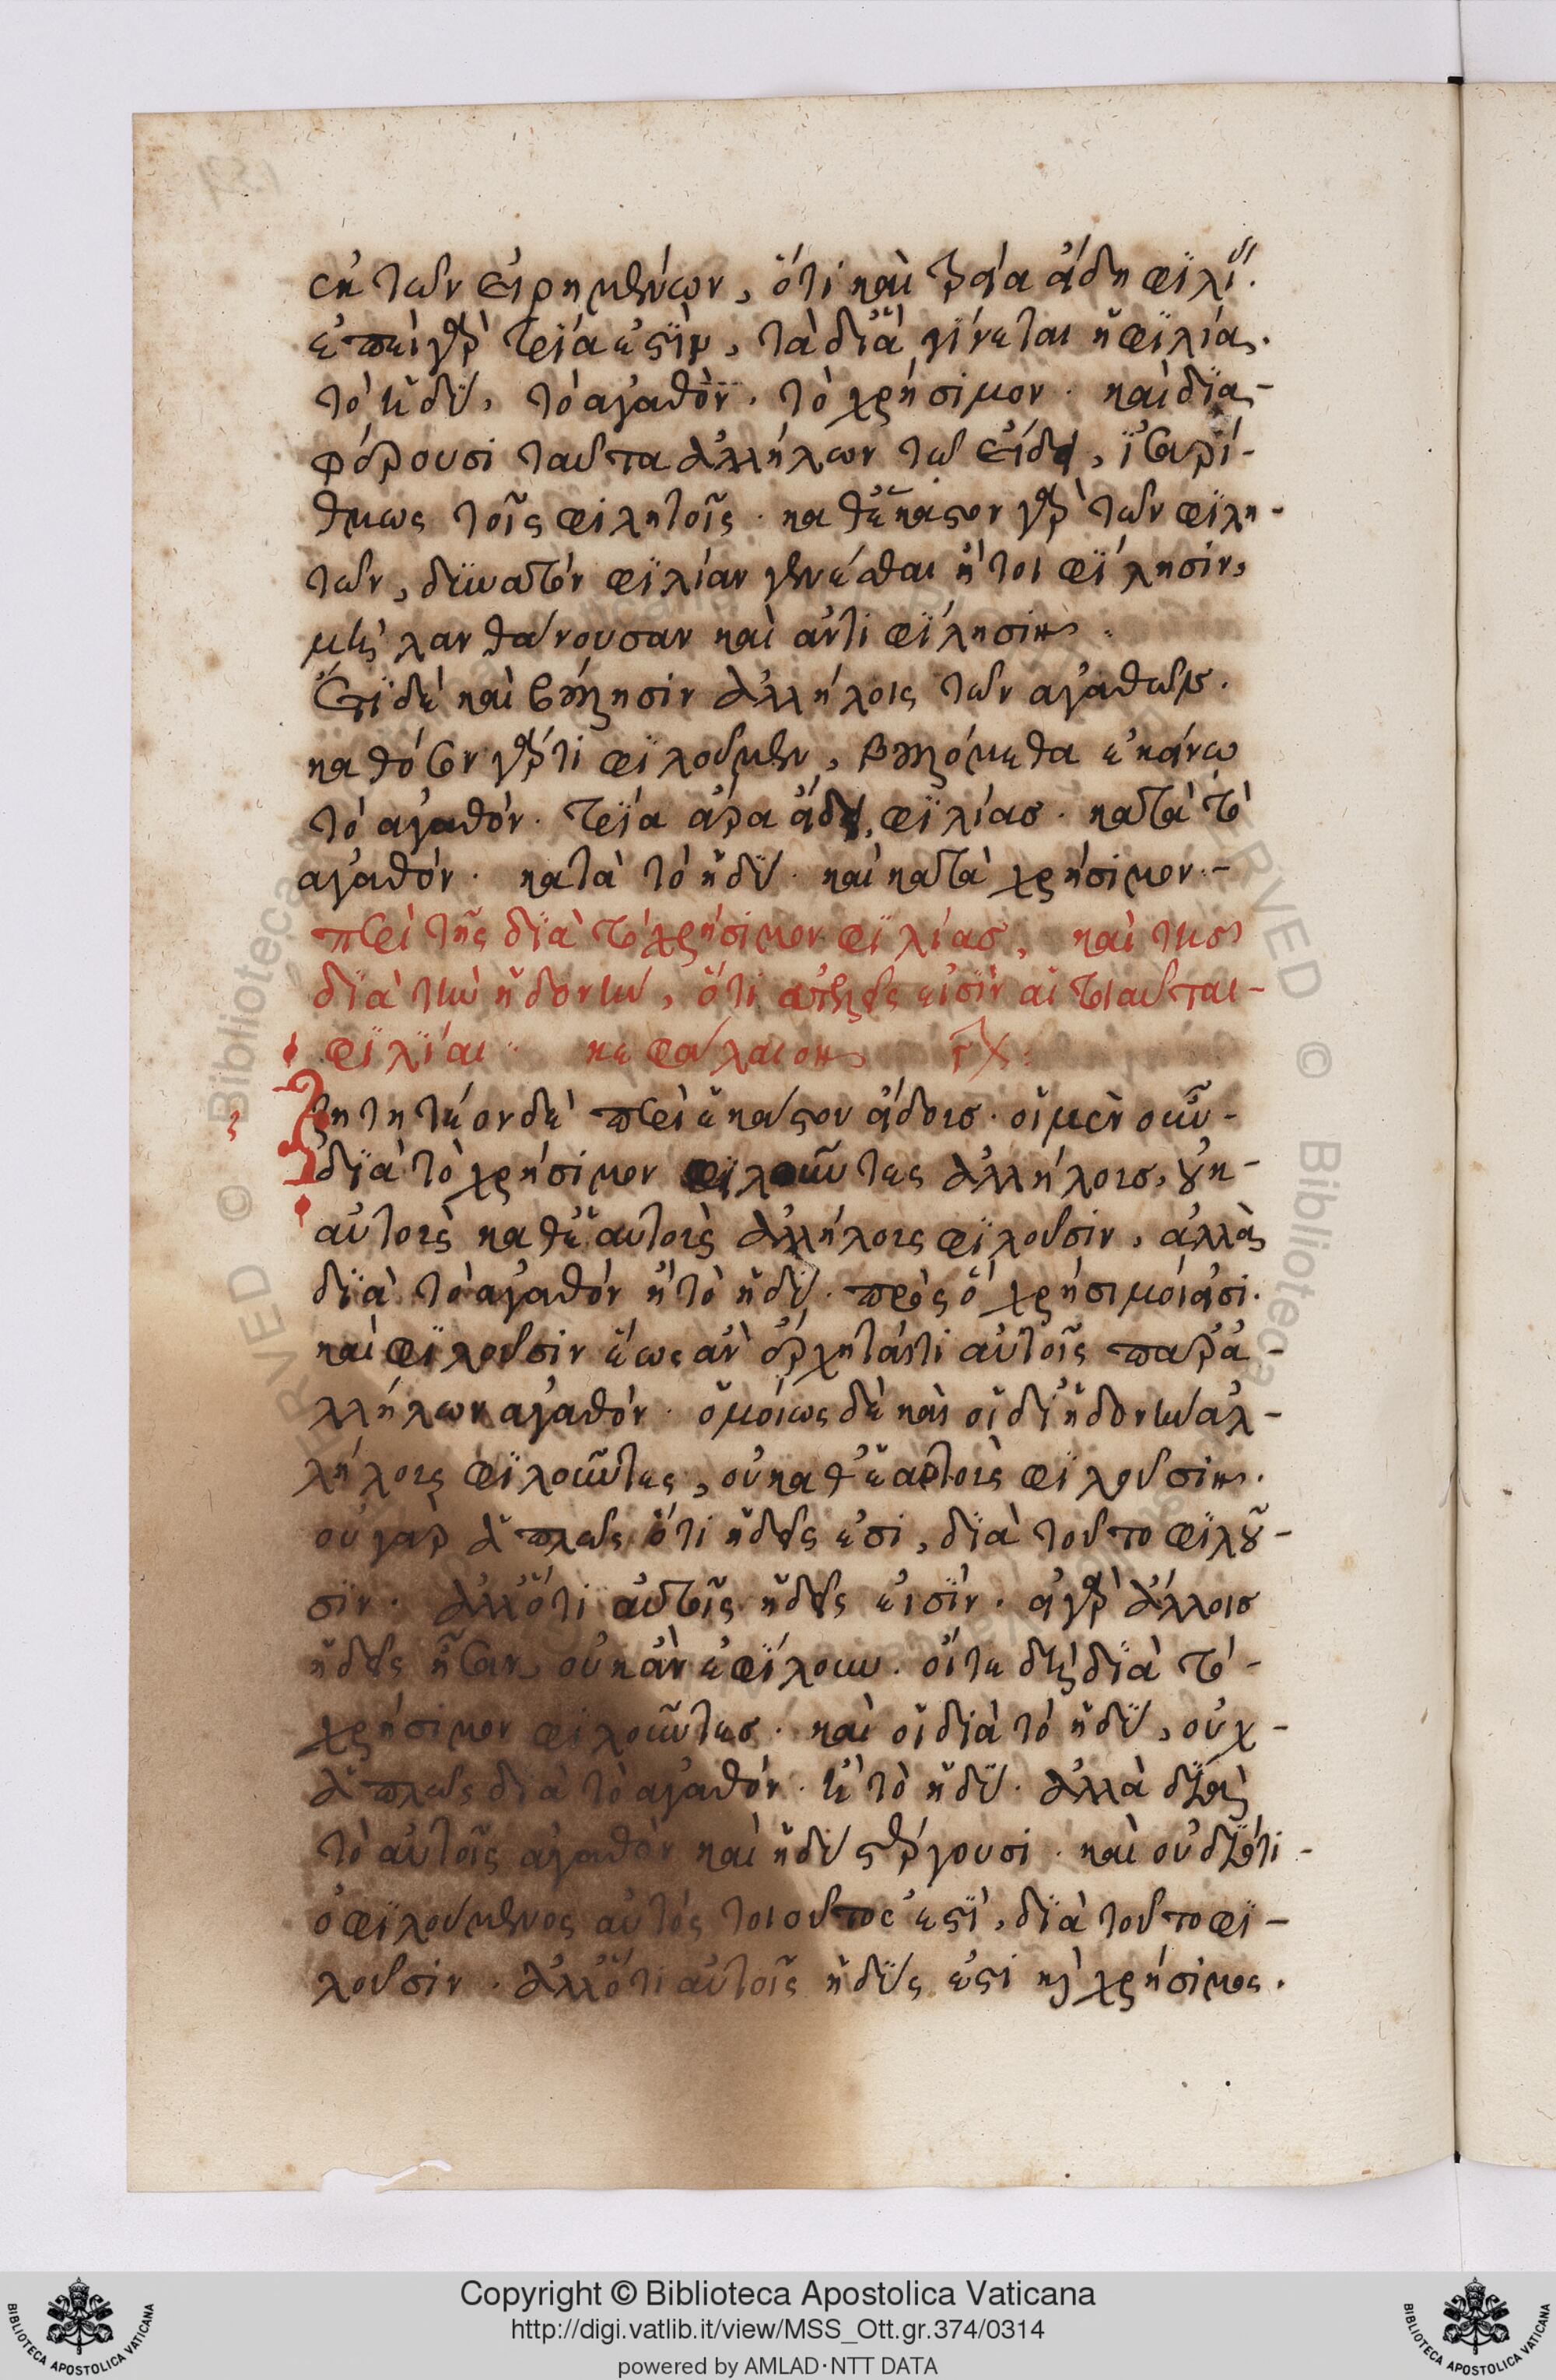 ἐκ τῶν εἰρημένων, ὅτι καὶ τρία εἴδη φιλι.
ἐπεὶ γὰρ τρία ἐστὶν, τὰ δι ἃ γίνεται ἡ φιλία.
τὸ ἡδὺ, τὸ ἀγαθὸν, τὸ χρήσιμον. καὶ δια-
φέρουσι ταῦτα ἀλλήλων τῶ εἴδει, ἰσαρί-
θμως τοῖς φιλητοῖς. καθ ἕκαστον γὰρ τῶν φιλη-
τῶν, δυνατὸν φιλίαν γενέσθαι ἤτοι φίλησιν,
μὴ λανθάνουσαν καὶ ἀντιφίλησιν.
ἔτι δὲ καὶ βούλησιν ἀλλήλοις τῶν ἀγαθῶν.
καθόσον γάρ τι φιλοῦμεν, βουλόμεθα ἐκείνω
τὸ ἀγαθόν. τρία ἄρα εἴδη φιλίας. κατὰ τὸ
ἀγαθόν. κατὰ τὸ ἡδὺ. καὶ κατὰ χρήσιμον.-
περὶ τῆς διὰ τὸ χρήσιμον φιλίας, καὶ τῆς
διὰ τὴν ἡδονὴν, ὅτι ἀτελεῖς εἰσὶν αἱ τοιαῦται-
φιλίαι. κεφάλαιον
Ζητητέον δὲ περὶ ἑκάστου εἴδους. οἱ μὲν οὖν-
διὰ τὸ χρήσιμον φιλοῦντες ἀλλήλους, οὐκ-
αὐτοὺς καθ ἑαυτοὺς ἀλλήλους φιλοῦσιν, ἀλλὰ
διὰ τὸ ἀγαθὸν ἢ τὸ ἡδὺ. πρὸς ὃ χρήσιμοί εἰσι.
καὶ φιλοῦσιν ἕως ἂν ἔρχηταί τι αὐτοῖς παρ ἀ-
λλήλων ἀγαθόν. ὁμοίως δὲ καὶ οἱ δι ἡδονὴν ἀλ-
λήλους φιλοῦντες, οὐ καθ ἑαυτοὺς φιλοῦσιν.
οὐ γὰρ ἁπλῶς ὅτι ἡδεῖς εἰσι, διὰ τοῦτο φιλοῦ-
σιν. ἀλλ ὅτι αὐτοῖς ἡδεῖς εἰσίν. εἰ γὰρ ἄλλοις
ἡδεῖς ἦσαν, οὐκ ἂν ἐφίλουν. οἵ τε δὴ διὰ τὸ-
χρήσιμον φιλοῦντες. καὶ οἱ διὰ τὸ ἡδὺ, οὐχ-
ἁπλῶς διὰ τὸ ἀγαθόν. ἢ τὸ ἡδὺ. ἀλλὰ διὰ
τὸ αὐτοῖς ἀγαθὸν καὶ ἡδὺ στέργουσι. καὶ οὐ διότι-
ὁ φιλούμενος αὐτὸς τοιοῦτος ἐστὶ, διὰ τοῦτο φι-
λοῦσιν. ἀλλ ὅτι αὐτοῖς ἡδύς ἐστι καὶ χρήσιμος.
Copyright © Biblioteca Apostolica Vaticana
http://digi.vatlib.it/view/MSS_Ott.gr.374/0314
powered by AMLAD·NTT DATA
BIBLIOTECA APOSTOLICA VATICANA
BIBLIOTECA APOSTOLICA VATICANA